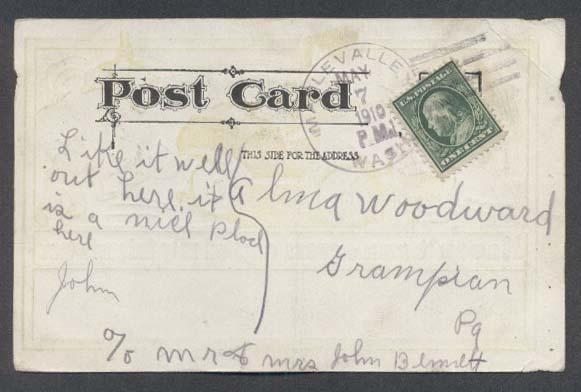 Post Card
MAPLEVALLEY
MAY
7
1910
P.M.
WASH
U.S. POSTAGE
ONE CENT
THIS SIDE FOR THE ADDRESS
Like it well
out here, it
is a nice Place
here
John
Alma Woodward
Grampian
Pa
c/o Mr & Mrs John Bennett